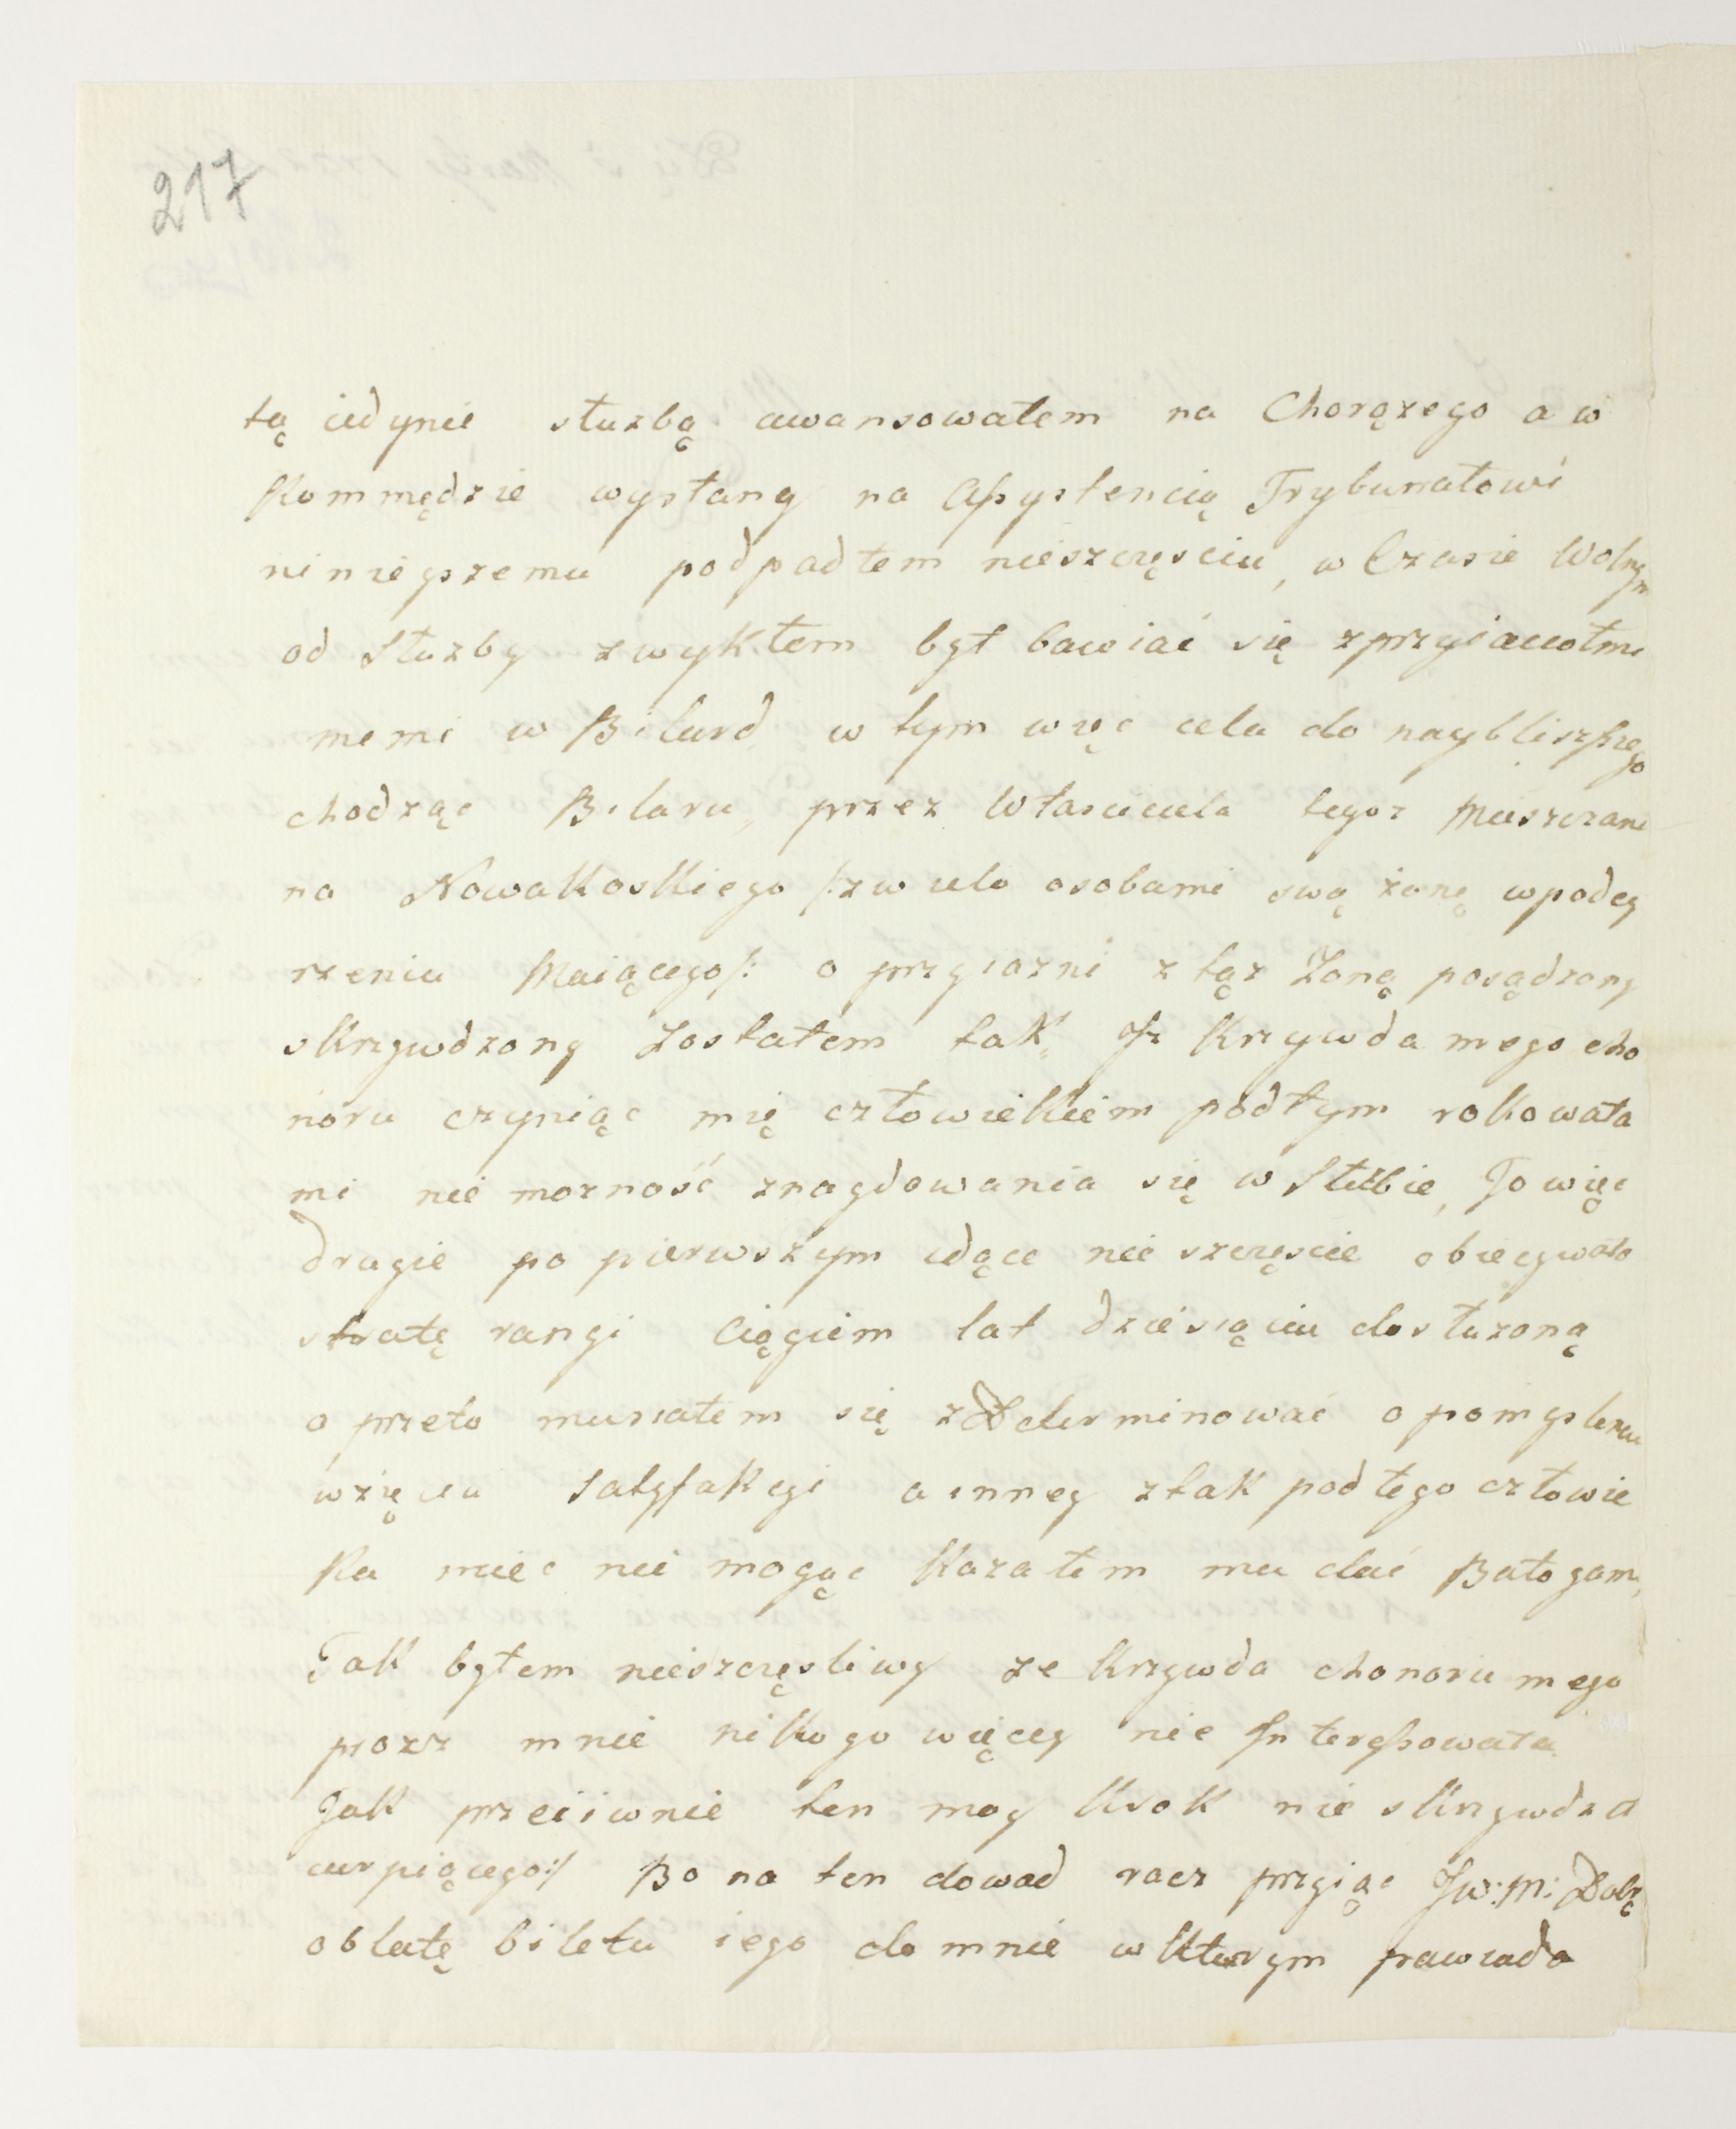 217
tą iedynie słuzbą awansowałem na Chorązego a w
Kommędzie wysłany na Assystencią Trybunałowi
ninieyszemu podpadłem nieszczęsciu, w Czasie Wolnym
od Słuzby zwykłem był bawiać się zprzyiaciołmi
memi w Bilard, w tym więc celu do nayblisższego
chodząc Bilaru, przez Własciciela tegoz Mieszczani
na Nowakoskiego /:zwielo osobami swą żonę wpodey
rzeniu Maiącego/: o przyiazni z tąz Zoną posądzony
skrzywdzony Zostałem tak, Iz Krzywda mego cho
noru czyniąc mię człowiekiem podłym rokowała
mi nie mozność znaydowania się w Służbie, To więc
drugie po pierwszym idące nieszczęscie obiecywało
stratę rangi Ciągiem lat dziesiąciu dosłuzoną
o przeto musiałem się zDeterminować o pomysleniu
wzięcia Satyfakcyi a inney ztak podłego człowie
ka miec nie mogąc Kazałem mu dać Batogami,
Tak byłem nieszczęsliwy ze Krzywda chonoru mego
procz mnie nikogo więcey nie Interessowała
Jak przeciiwnie ten moy Krok nie skrzywdza
cierpiącego:/ Bo na ten dowod racz przyiąc Jw: M: Dobrą
oblatę biletu iego do mnie w Kturym powiada